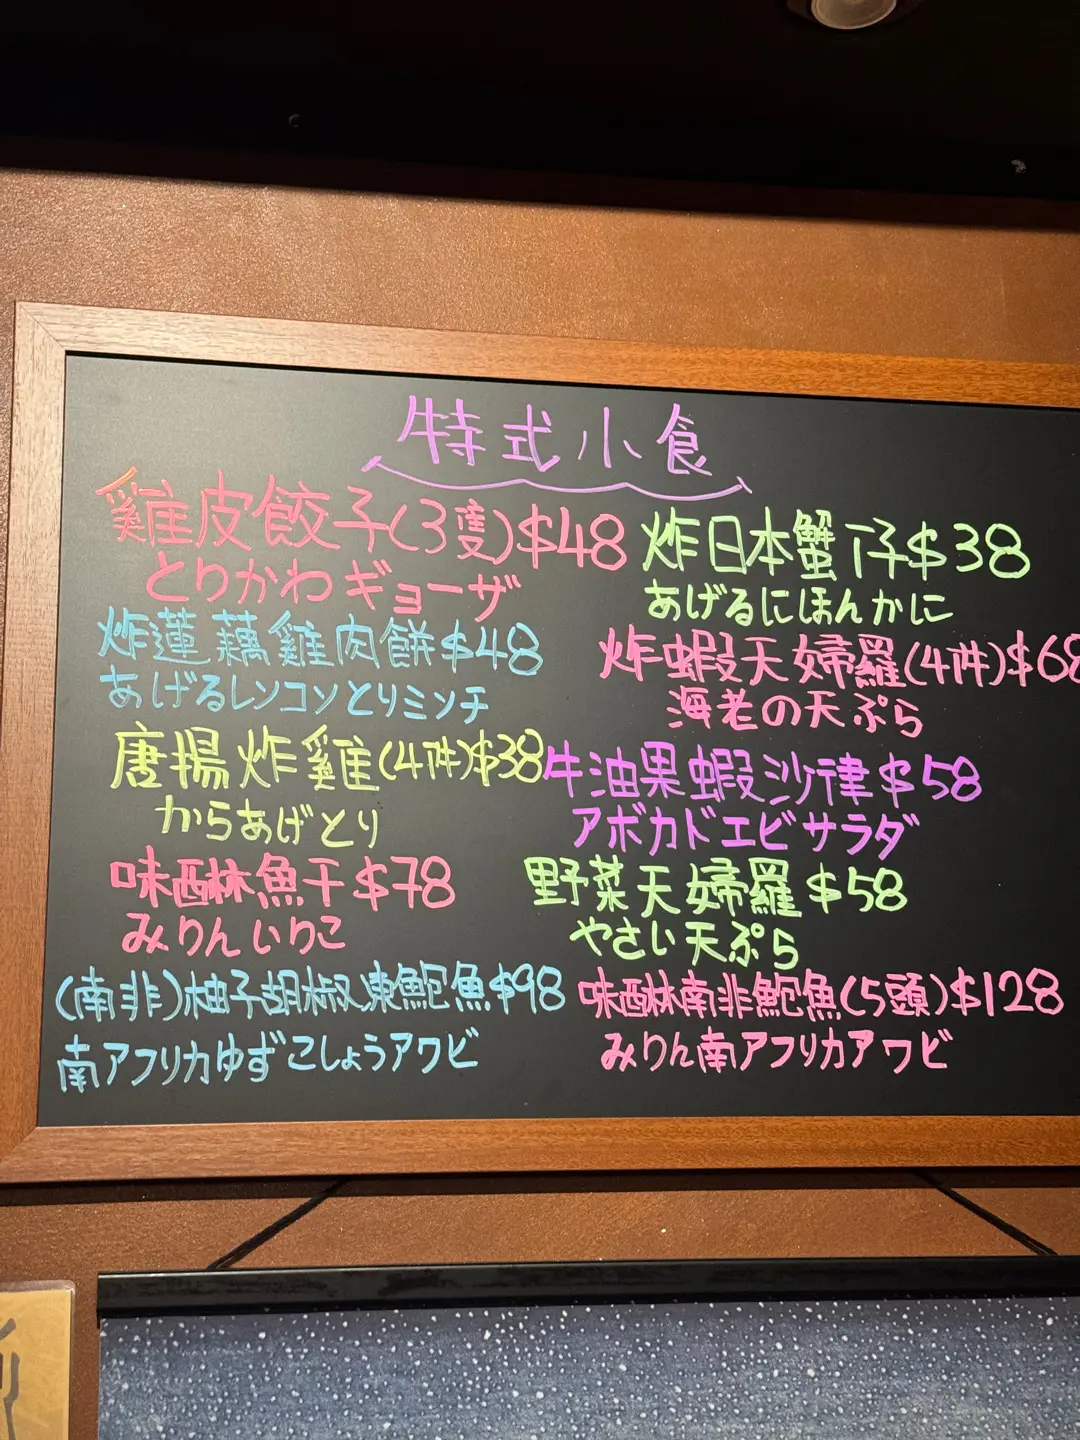 特式小食
雞皮餃子(3隻)$48
とりかわギョーザ
炸蓮藕雞肉餅$48
あげるレンコンとりミンチ
唐揚炸雞(4件)$38
からあげとり
味醂魚干$78
みりんいりこ
(南非)柚子胡椒凍鮑魚$98
南アフリカゆずこしょうアワビ
炸日本蟹仔$38
あげるにほんかに
炸蝦天婦羅(4件)$68
海老の天ぷら
牛油果蝦沙律$58
アボカドエビサラダ
野菜天婦羅$58
やさい天ぷら
味醂南非鮑魚(5頭)$128
みりん南アフリカアワビ